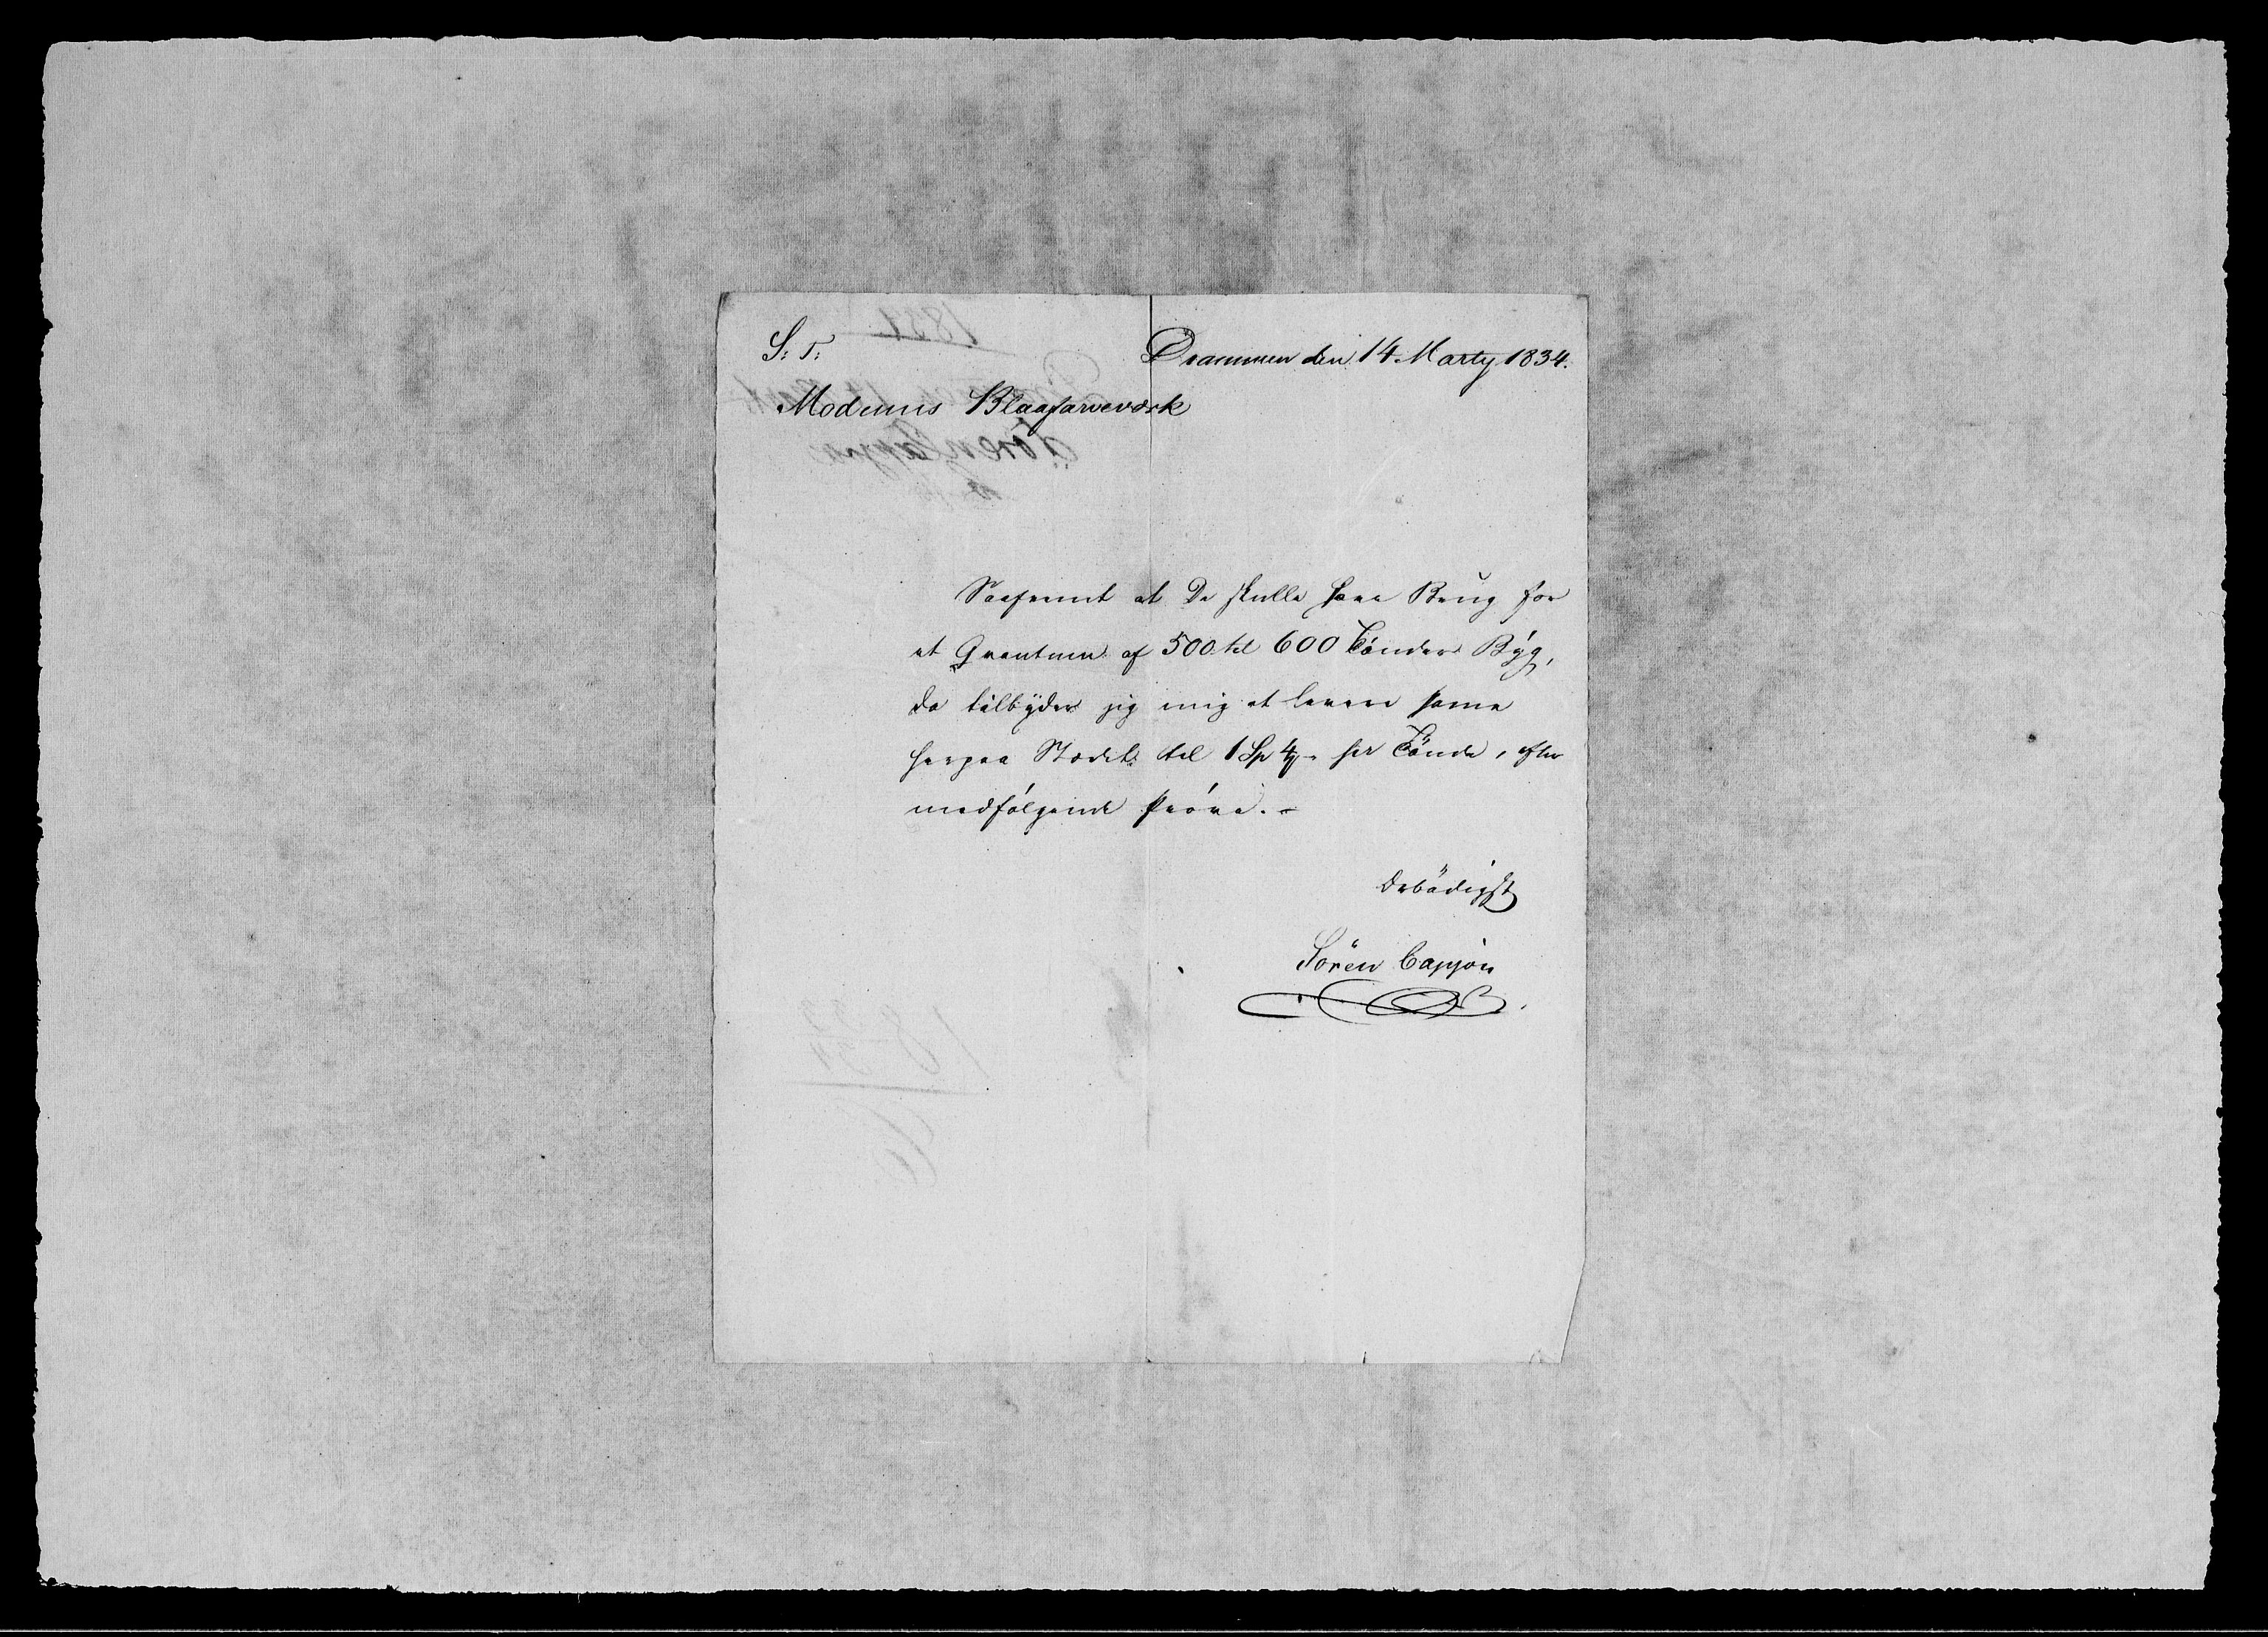 S: T:
Drammen den 14 Marty 1834.
Modums Blaafarveværk
Saafremt at De skulle have Brug for
et Qvantum af 500 til 600 Tönder Byg,
da tilbyder jeg mig at levere same
herpaa Stædet til 1 Sp 4 per Tönde, efter
medfölgende Pröve. -
Ærbödigst
Sören Cappön